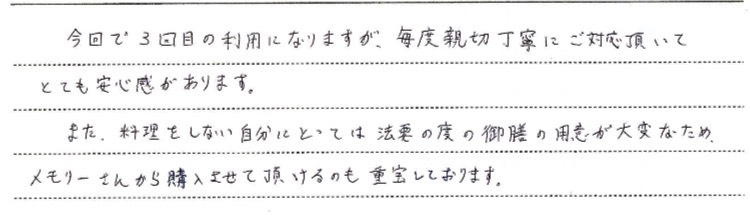 今回で3回目の利用になりますが、毎度親切丁寧にご対応頂いて
とても安心感があります。
また、料理をしない自分にとっては法要の度の御膳の用意が大変なため、
メモリーさんから購入させて頂けるのも重宝しております。